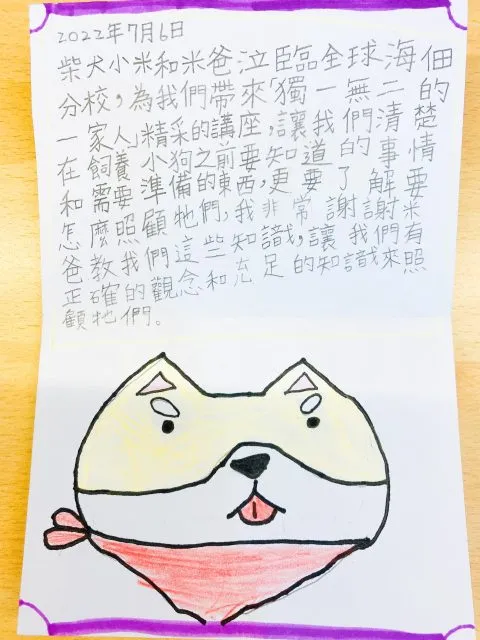 2022年7月6日
柴犬小米和米爸泣臨全球海佃
分校，為我們帶來「獨一無二的
一家人」精采的講座，讓我們清楚
在飼養小狗之前要知道的事情
和需要準備的東西，更要了解要
怎麼照顧牠們，我非常謝謝米
爸教我們這些知識，讓我們有
正確的觀念和充足的知識來照
顧牠們。